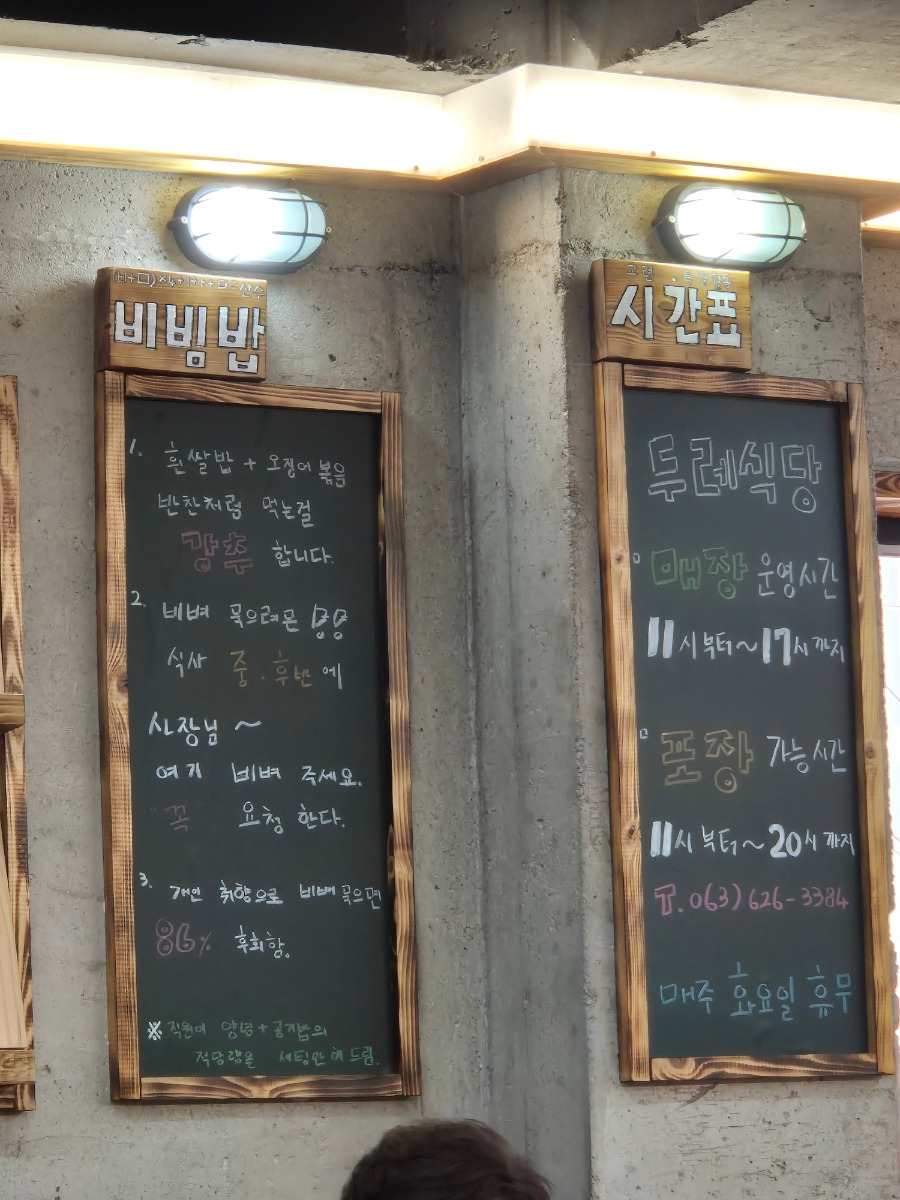 비빔밥
1. 흰쌀밥 + 오징어 볶음
반찬처럼 먹는걸
강추 합니다.
2. 비벼
식사 중.후반에
사장님 ~
여기 비벼 주세요.
꼭 요청 한다.
3. 개인 취향으로 비벼
86% 후회함.
※ 직원이 양념 + 공기밥의
적당량을 세팅만 해 드림.
시간표
두레식당
매장 운영시간
11시부터~17시까지
포장 가능시간
11시부터~20시까지
T. 063) 626-3384
매주 화요일 휴무